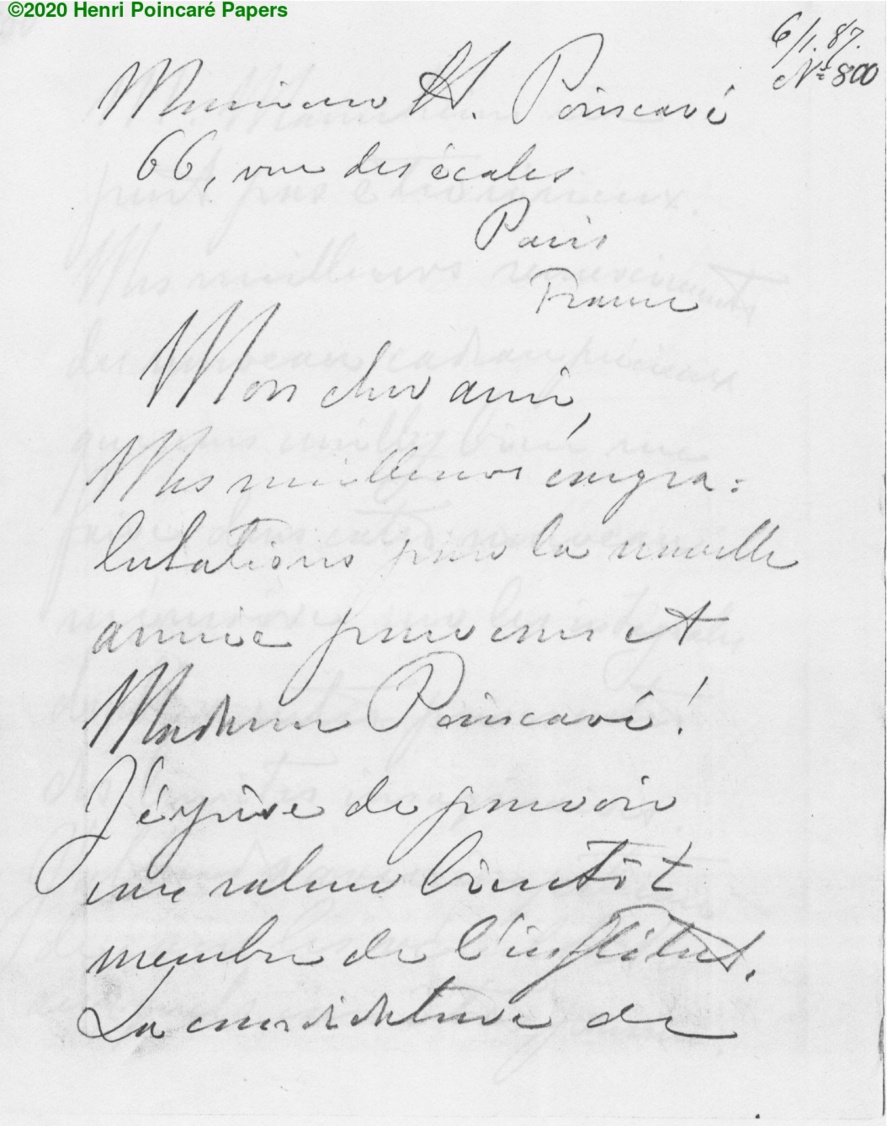 ©2020 Henri Poincaré Papers
6/1.87.
Nº 800
Monsieur H. Poincaré
66, rue des écoles
Paris
France
Mon cher ami,
Mes meilleures congra:
tulations pour la nouvelle
année pour vous et
Madame Poincaré!
J'éspère de pouvoir
vous saluer bientôt
membre de l'institut.
La candidature de